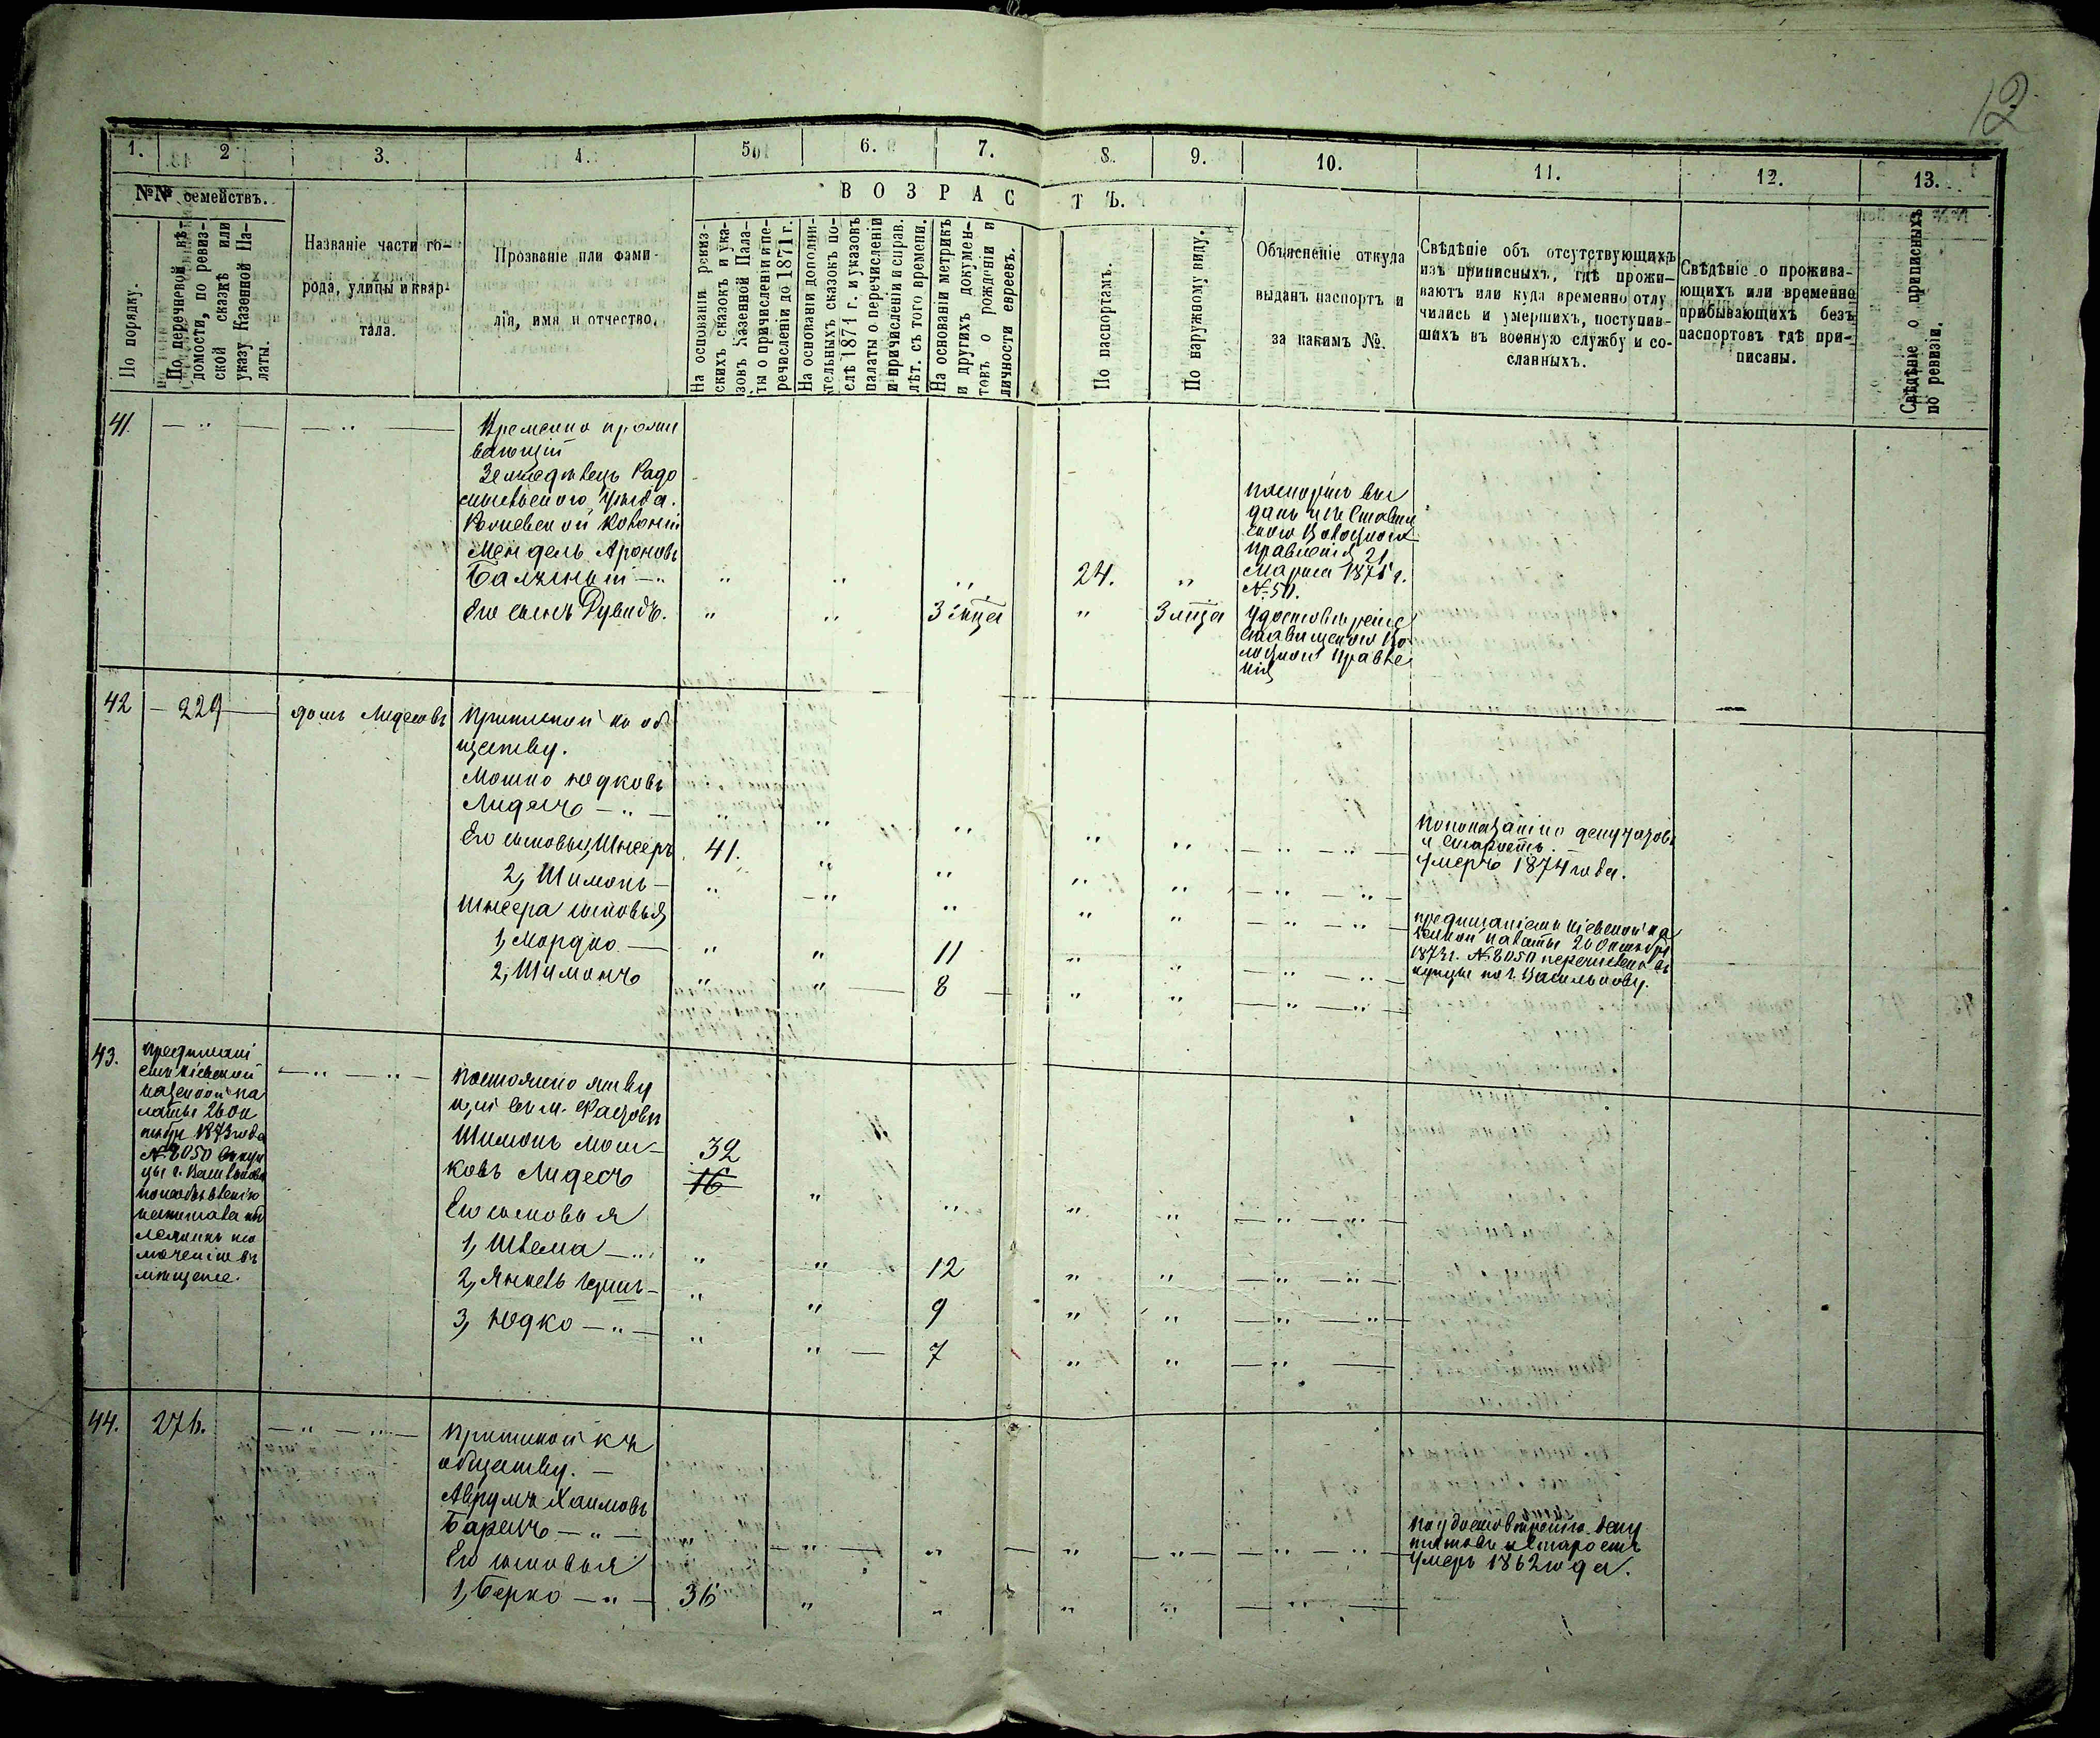 12
1.
2
3.
4.
5
6.
7.
8.
9.
10.
11.
12.
13.
№№ семействъ.
ВОЗРАСТЪ.
По порядку.
По перечневой вѣ-
домости, по ревиз-
ской сказкѣ или
указу Казенной Па-
латы.
Названіе части го-
рода, улицы и квар-
тала.
Прозваніе или фами-
лія, имя и отчество.
На основаніи ревиз-
скихъ сказокъ и ука-
зовъ Казенной Пала-
ты о причисленіи и пе-
речисленіи до 1871 г.
На основаніи дополни-
тельныхъ сказокъ по-
слѣ 1871 г. и указовъ
палаты о перечисленіи
и причисленіи и справ.
лѣт. съ того времени.
На основаніи метрикъ
и другихъ докумен-
товъ о рожденіи и
личности евреевъ.
По паспортамъ.
По наружному виду.
Объясненіе откуда
выданъ паспортъ и
за какимъ №.
Свѣдѣніе объ отсутствующихъ
изъ приписныхъ, гдѣ прожи-
ваютъ или куда временно отлу
чились и умершихъ, поступив-
шихъ въ военную службу и со-
сланныхъ.
Свѣдѣніе о прожива-
ющихъ или временно
прибывающихъ безъ
паспортовъ гдѣ при-
писаны.
Свѣдѣніе о приписныхъ
по ревизіи.
41.
Временно прожи
вающій
Земледѣлецъ Радо
мысльского уѣзда.
колоніи
Мендель Ароновъ
24.
паспортъ вы
данъ изъ Ставищ
ского Волостного
правленія 21
Марта 1875 г.
№ 50.
Его сынъ Рувидъ.
3 мца
3 мца
Удостовѣреніе
Ставищского Во
лостного правле
нія
42
229
домъ Лидеговъ
приписной къ об
ществу.
Мошко Юдковъ
Лидегъ
По показанію депутатовъ
и старосты
умеръ 1874 года.
Его сыновья, Шнееръ
41.
2, Шимонъ
предписаніемъ Кіевской ка
зенной палаты 26 Октября
1873 г. № 8050 перечисленъ въ
купцы по г. Василькову.
Шнеера сыновья
1, Мордко
11
2, Шимонъ
8
43.
предписані
емъ Кіевской
казенной па
латы 26 Ок
тября 1873 года
№ 8050 въ куп
цы г. Василькова
въ
мѣщане.
постоянно живу
щій въ м.
Шимонъ Мош-
ковъ Лидегъ
32
16
Его сыновья
1, Шлема
12
2, Янкель Герш
9
3, Юдко
7
44.
276.
приписной къ
обществу.
Аврумъ Хаимовъ
По удостовѣренію депу
татовъ и старосты
умеръ 1862 года.
Его сыновья
1, Берко
36